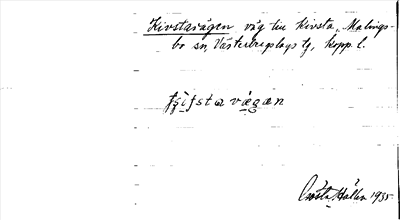 Kivstavägen väg till Kivsta, Malings-
bo sn, Västerbergslags tg, Kopp. l.
vægæn
Gösta Hallén 1935